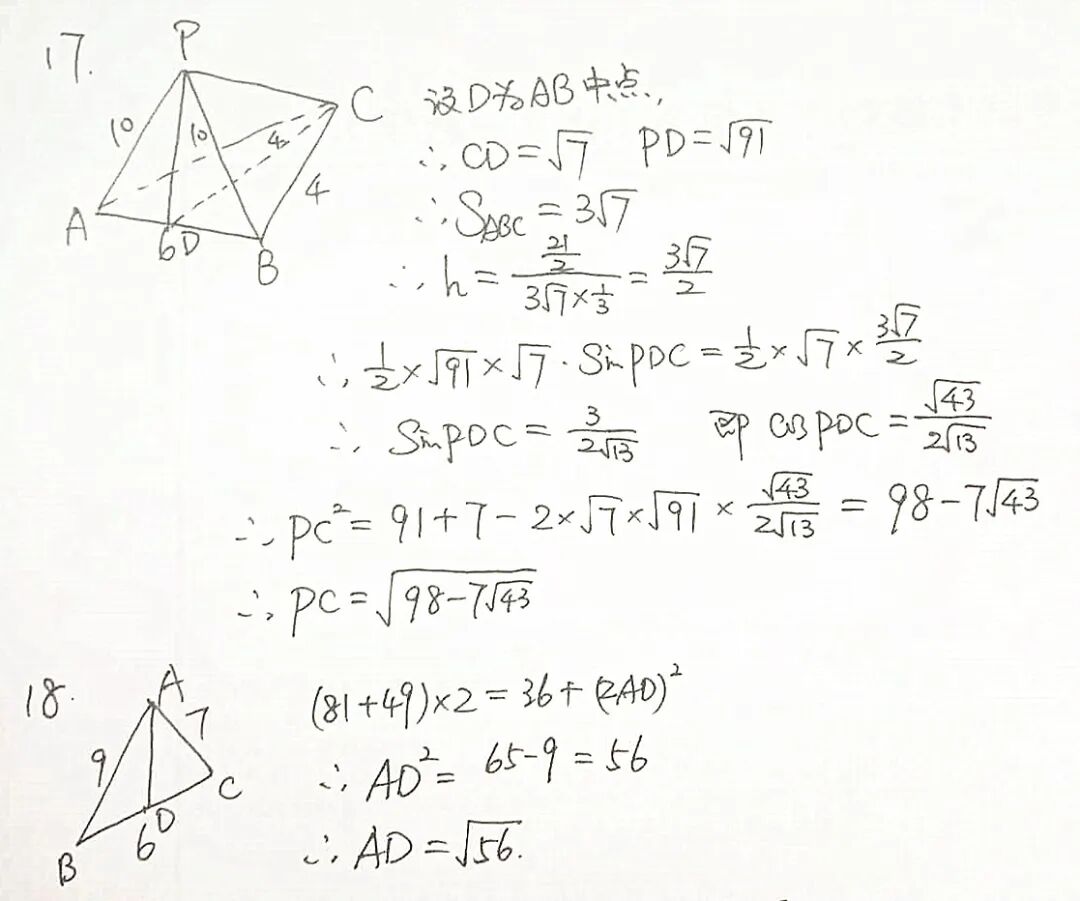 17.
P
C
10
10
4
4
A
6 D
B
设D为AB中点,
∴ CD=√7 PD=√91
∴ S_ABC = 3√7
∴ h = (21/2)/(3√7×1/3) = 3√7/2
∴ 1/2×√91×√7·SinPDC = 1/2×√7×3√7/2
∴ SinPDC = 3/(2√13) 即 cosPDC = √43/(2√13)
∴ PC² = 91+7-2×√7×√91×√43/(2√13) = 98-7√43
∴ PC = √(98-7√43)
18.
A
9
7
C
D
6
B
(81+49)×2 = 36+(2AD)²
∴ AD² = 65-9 = 56
∴ AD = √56.